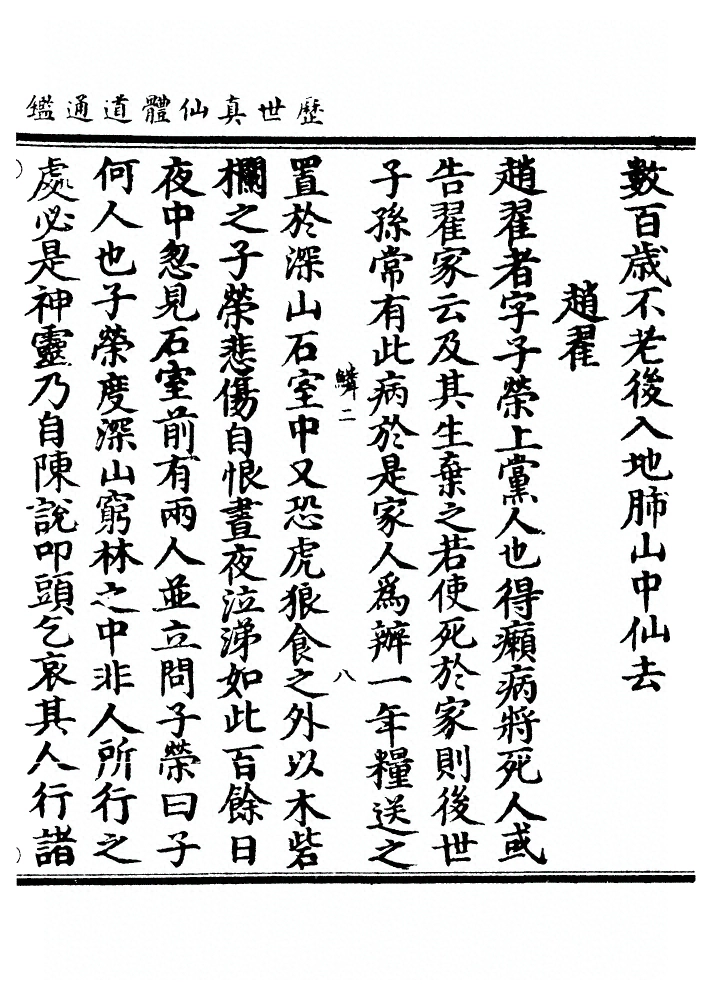 歷世真仙體道通鑑
數百歲不老後入地肺山中仙去
趙翟
趙翟者字子榮上黨人也得癩病將死人或
告翟家云及其生棄之若使死於家則後世
子孫常有此病於是家人為辦一年糧送之
鱗二
八
置於深山石室中又恐虎狼食之外以木砦
欄之子榮悲傷自恨晝夜泣涕如此百餘日
夜中忽見石室前有兩人並立問子榮曰子
何人也子榮度深山窮林之中非人所行之
處必是神靈乃自陳說叩頭乞哀其人行諸